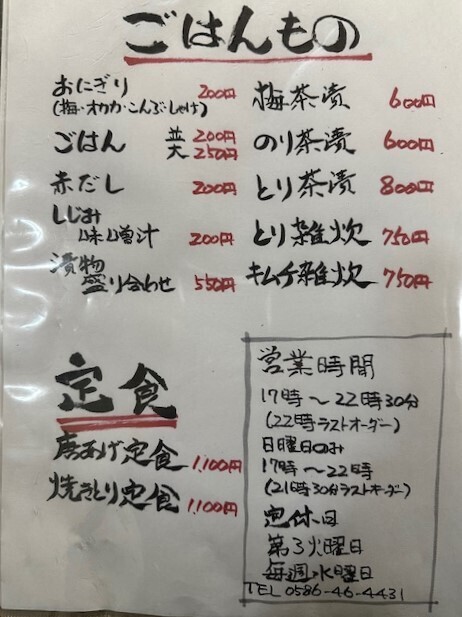 ごはんもの
おにぎり 200円
(梅・オカカ・こんぶ・しゃけ)
ごはん 並 200円
大 250円
赤だし 200円
しじみ
味噌汁 200円
漬物
盛り合わせ 550円
梅茶漬 600円
のり茶漬 600円
とり茶漬 800円
とり雑炊 750円
キムチ雑炊 750円
定食
唐あげ定食 1,100円
焼きとり定食 1,100円
営業時間
17時〜22時30分
(22時ラストオーダー)
日曜日のみ
17時〜22時
(21時30分ラストオーダー)
定休日
第3火曜日
毎週水曜日
TEL 0586-46-4431